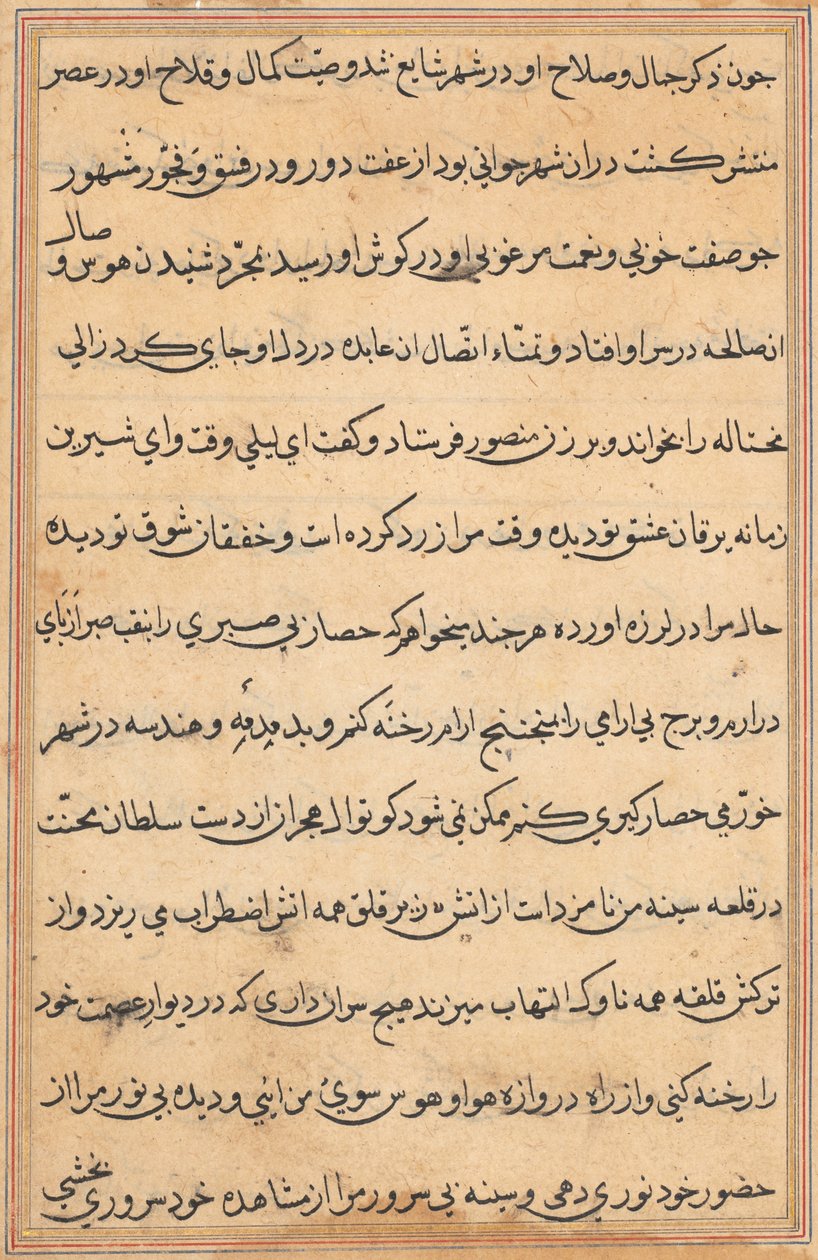 جون ذكر جمال و صلاح او در شهر شايع شد و صيّت كمال و فلاح او در عصر
منتشر كشت دران شهر جواني بود از عفت دور و در فسق وَ فجوّر مشهور
جو صفت خوبي و نعمت مرغوبي او در كوش او رسيد بمجرّد شنيدن هوس و صال
ان صالحه در سر او افتاد و تمنّاء اتّصال ان عابده در دل او جاي كرد زالي
محتاله را بخواند و بر زن منصور فرستاد و كفت اي ليلي وقت و اي شيرين
زمانه يرقان عشق تو ديده وقت مرا زرد كرده است و خفقان شوق تو ديده
حال مرا در لرزه اورده هر جند ميخواهم كه حصار بي صبري را بنقب صبر از پاي
درارم و برج بي ارامي را بمنجنيج ارام رخنَه كنم و بدمدمهٔ و هندسه در شهر
خورّمي حصار كيري كنم ممكن نمي شود كوتوال هجران از دست سلطان محنّت
در قلعه سينه من نامزد است از اتش زير قلق همه اتش اضطراب مي ريزد و از
تركش قلقه همه ناوك التهاب ميزند هيج سر ان داري كه در ديوارِ عصمت خود
را رخنه كني و از راه دروازه هوا و هوس سوئ من ائي و ديده بي نور مرا از
حضور خود نوري دهي و سينه بي سرور مرا از مشاهده خود سروري بخشي